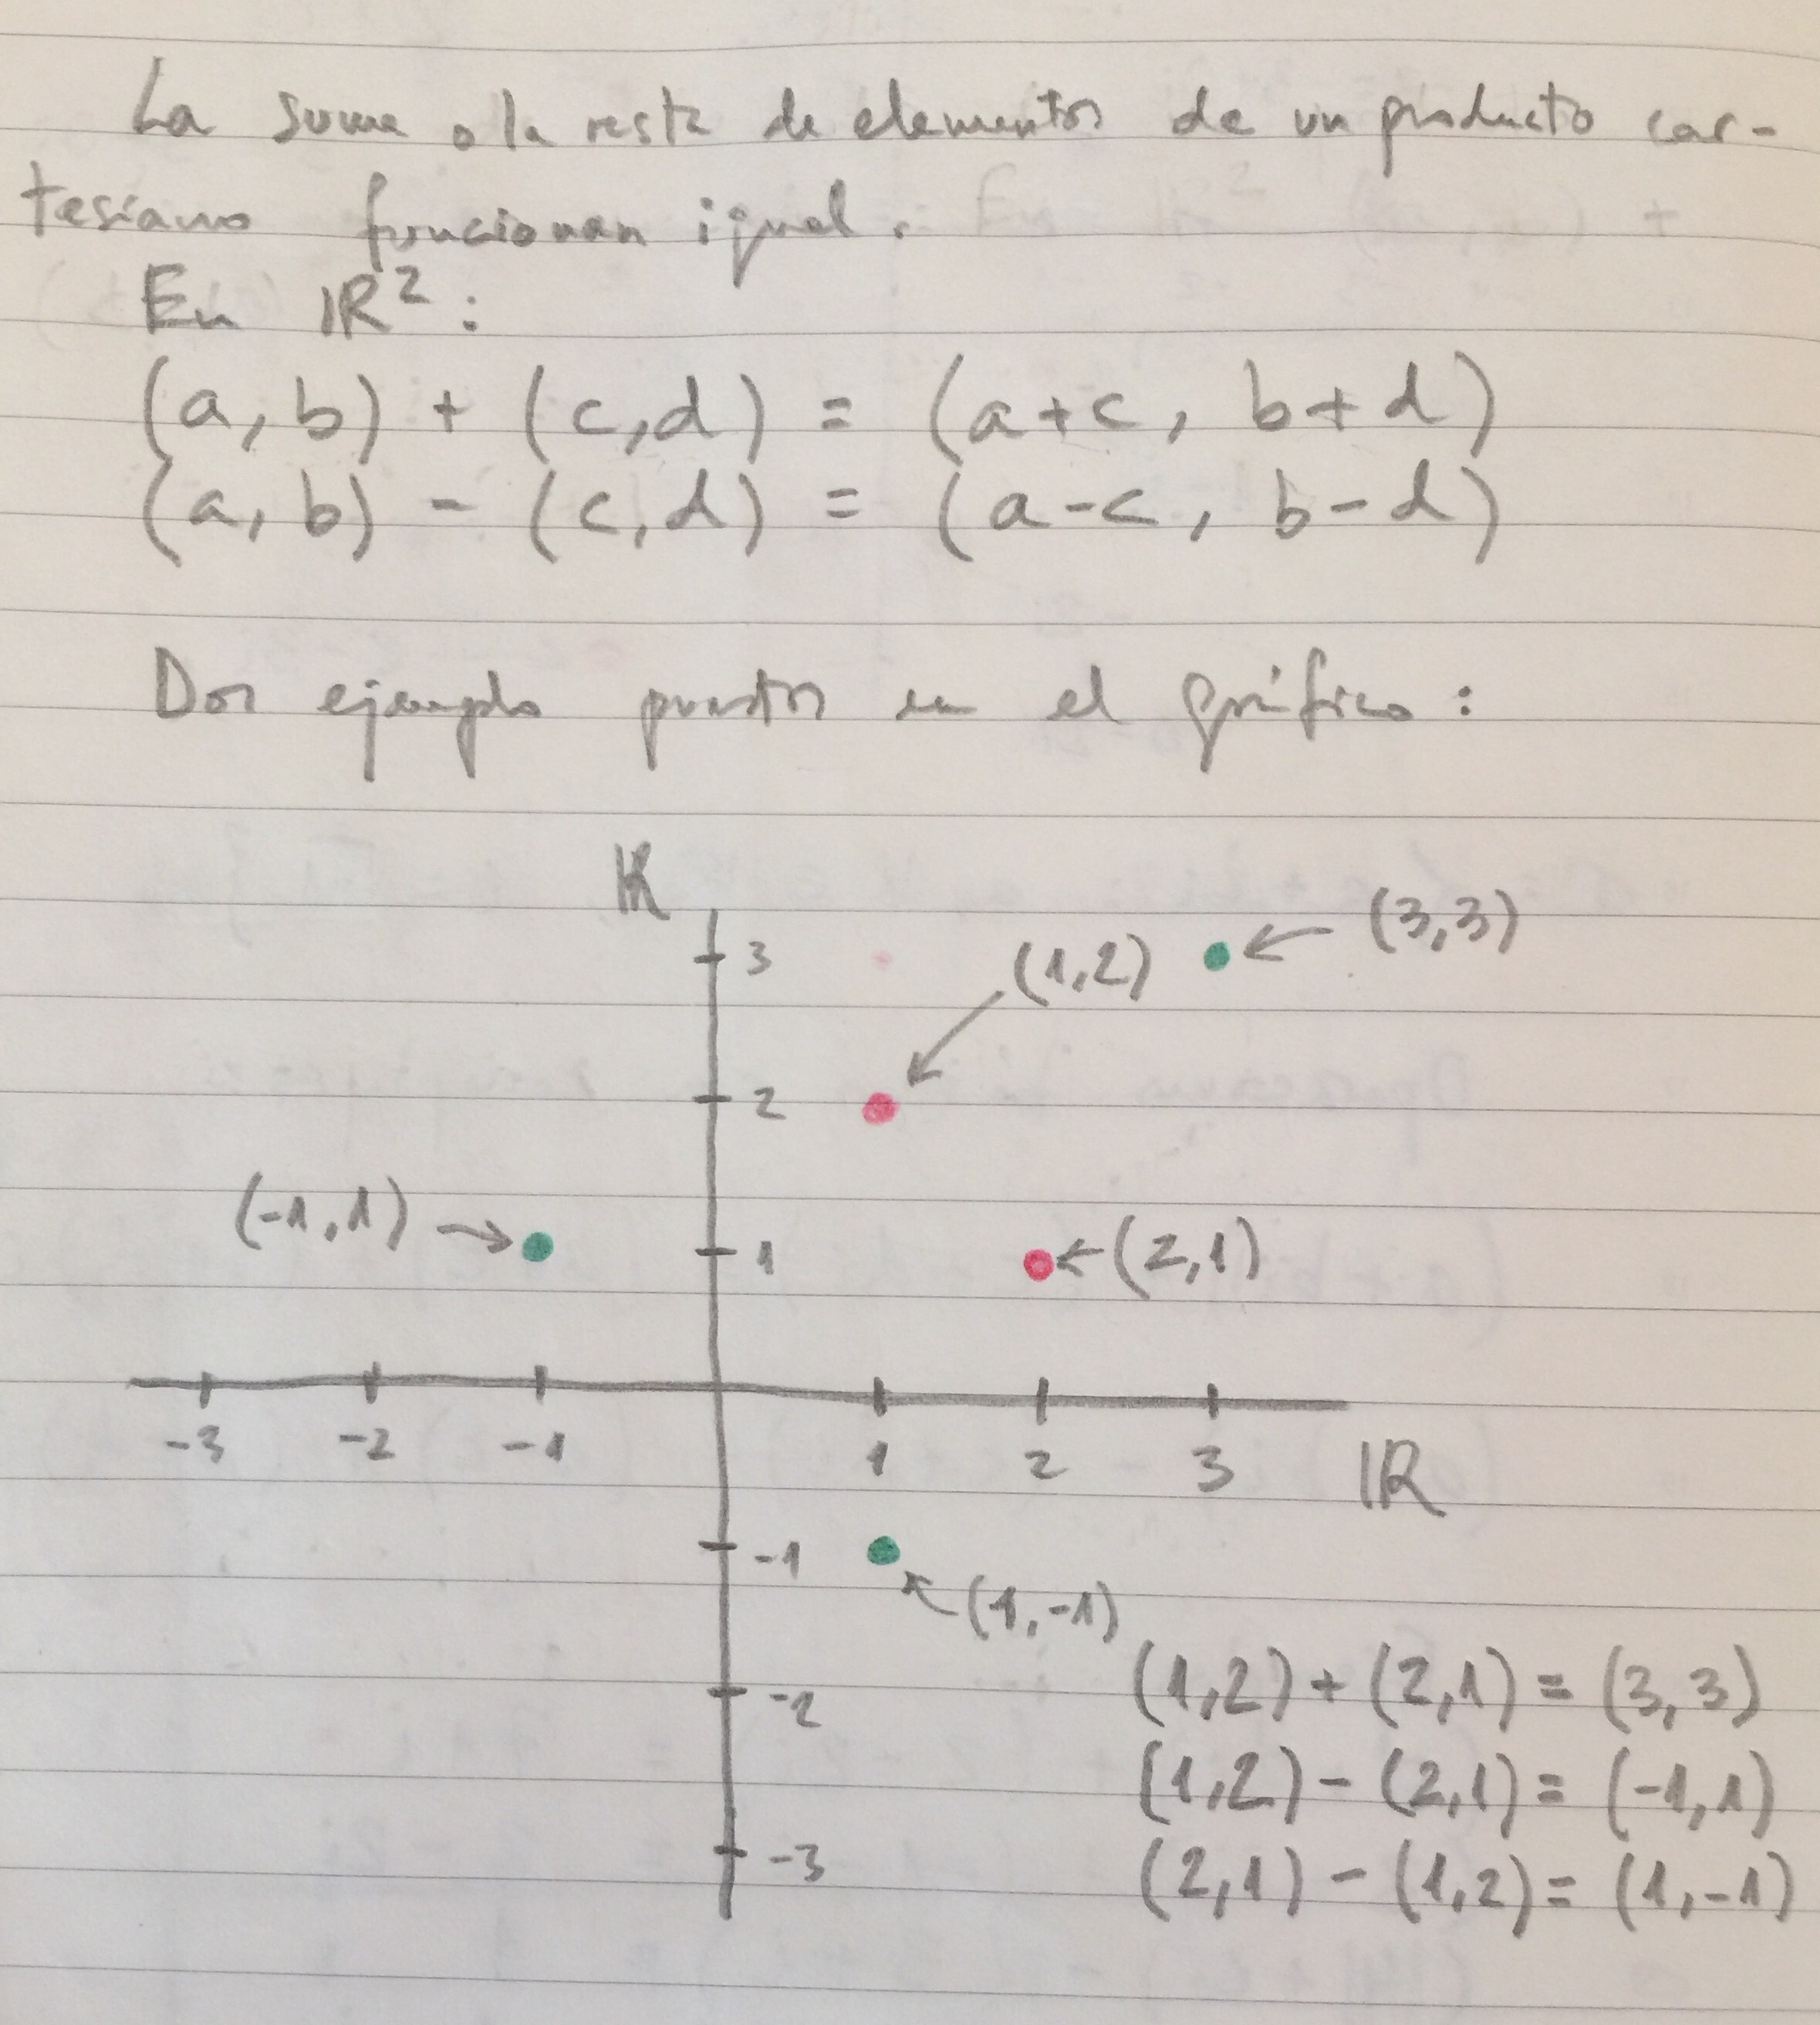 La suma o la resta de elementos de un producto car-
tesiano funcionan igual.
En ℝ²:
(a, b) + (c, d) = (a+c, b+d)
(a, b) - (c, d) = (a-c, b-d)
Dos ejemplo puestos en el gráfico:
ℝ
3
(1,2)
(3,3)
2
(-1,1)
1
(2,1)
-3 -2 -1 1 2 3 ℝ
-1
(1,-1)
-2
-3
(1,2) + (2,1) = (3,3)
(1,2) - (2,1) = (-1,1)
(2,1) - (1,2) = (1,-1)